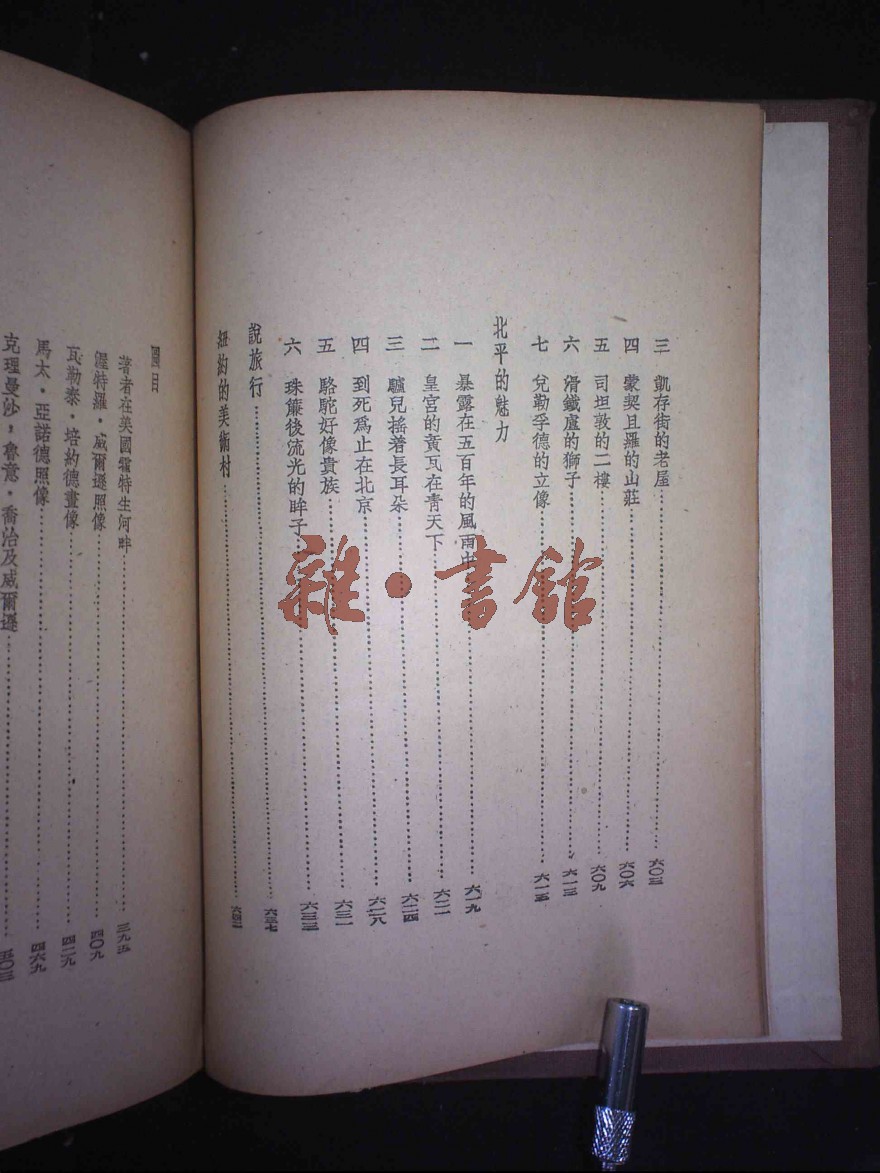 三 凱存街的老屋……六〇三
四 蒙契且羅的山莊……六〇六
五 司坦敦的二樓……六〇九
六 滑鐵盧的獅子……六一三
七 兌勒孚德的立像……六一五
北平的魅力
一 暴露在五百年的風雨中……六一九
二 皇宮的黃瓦在青天下……六二一
三 驢兒搖着長耳朵……六二四
四 到死爲止在北京……六二八
五 駱駝好像貴族……六三一
六 珠簾後流光的眸子……六三三
說旅行……六三七
紐約的美術村……六四三
圖目
著者在美國霍特生河畔……三九五
渥特羅・威爾遜照像……四〇九
瓦勒泰・培約德畫像……四二九
馬太・亞諾德照像……四六九
克理曼沙，魯意・喬治及威爾遜……五〇三
雜・書館